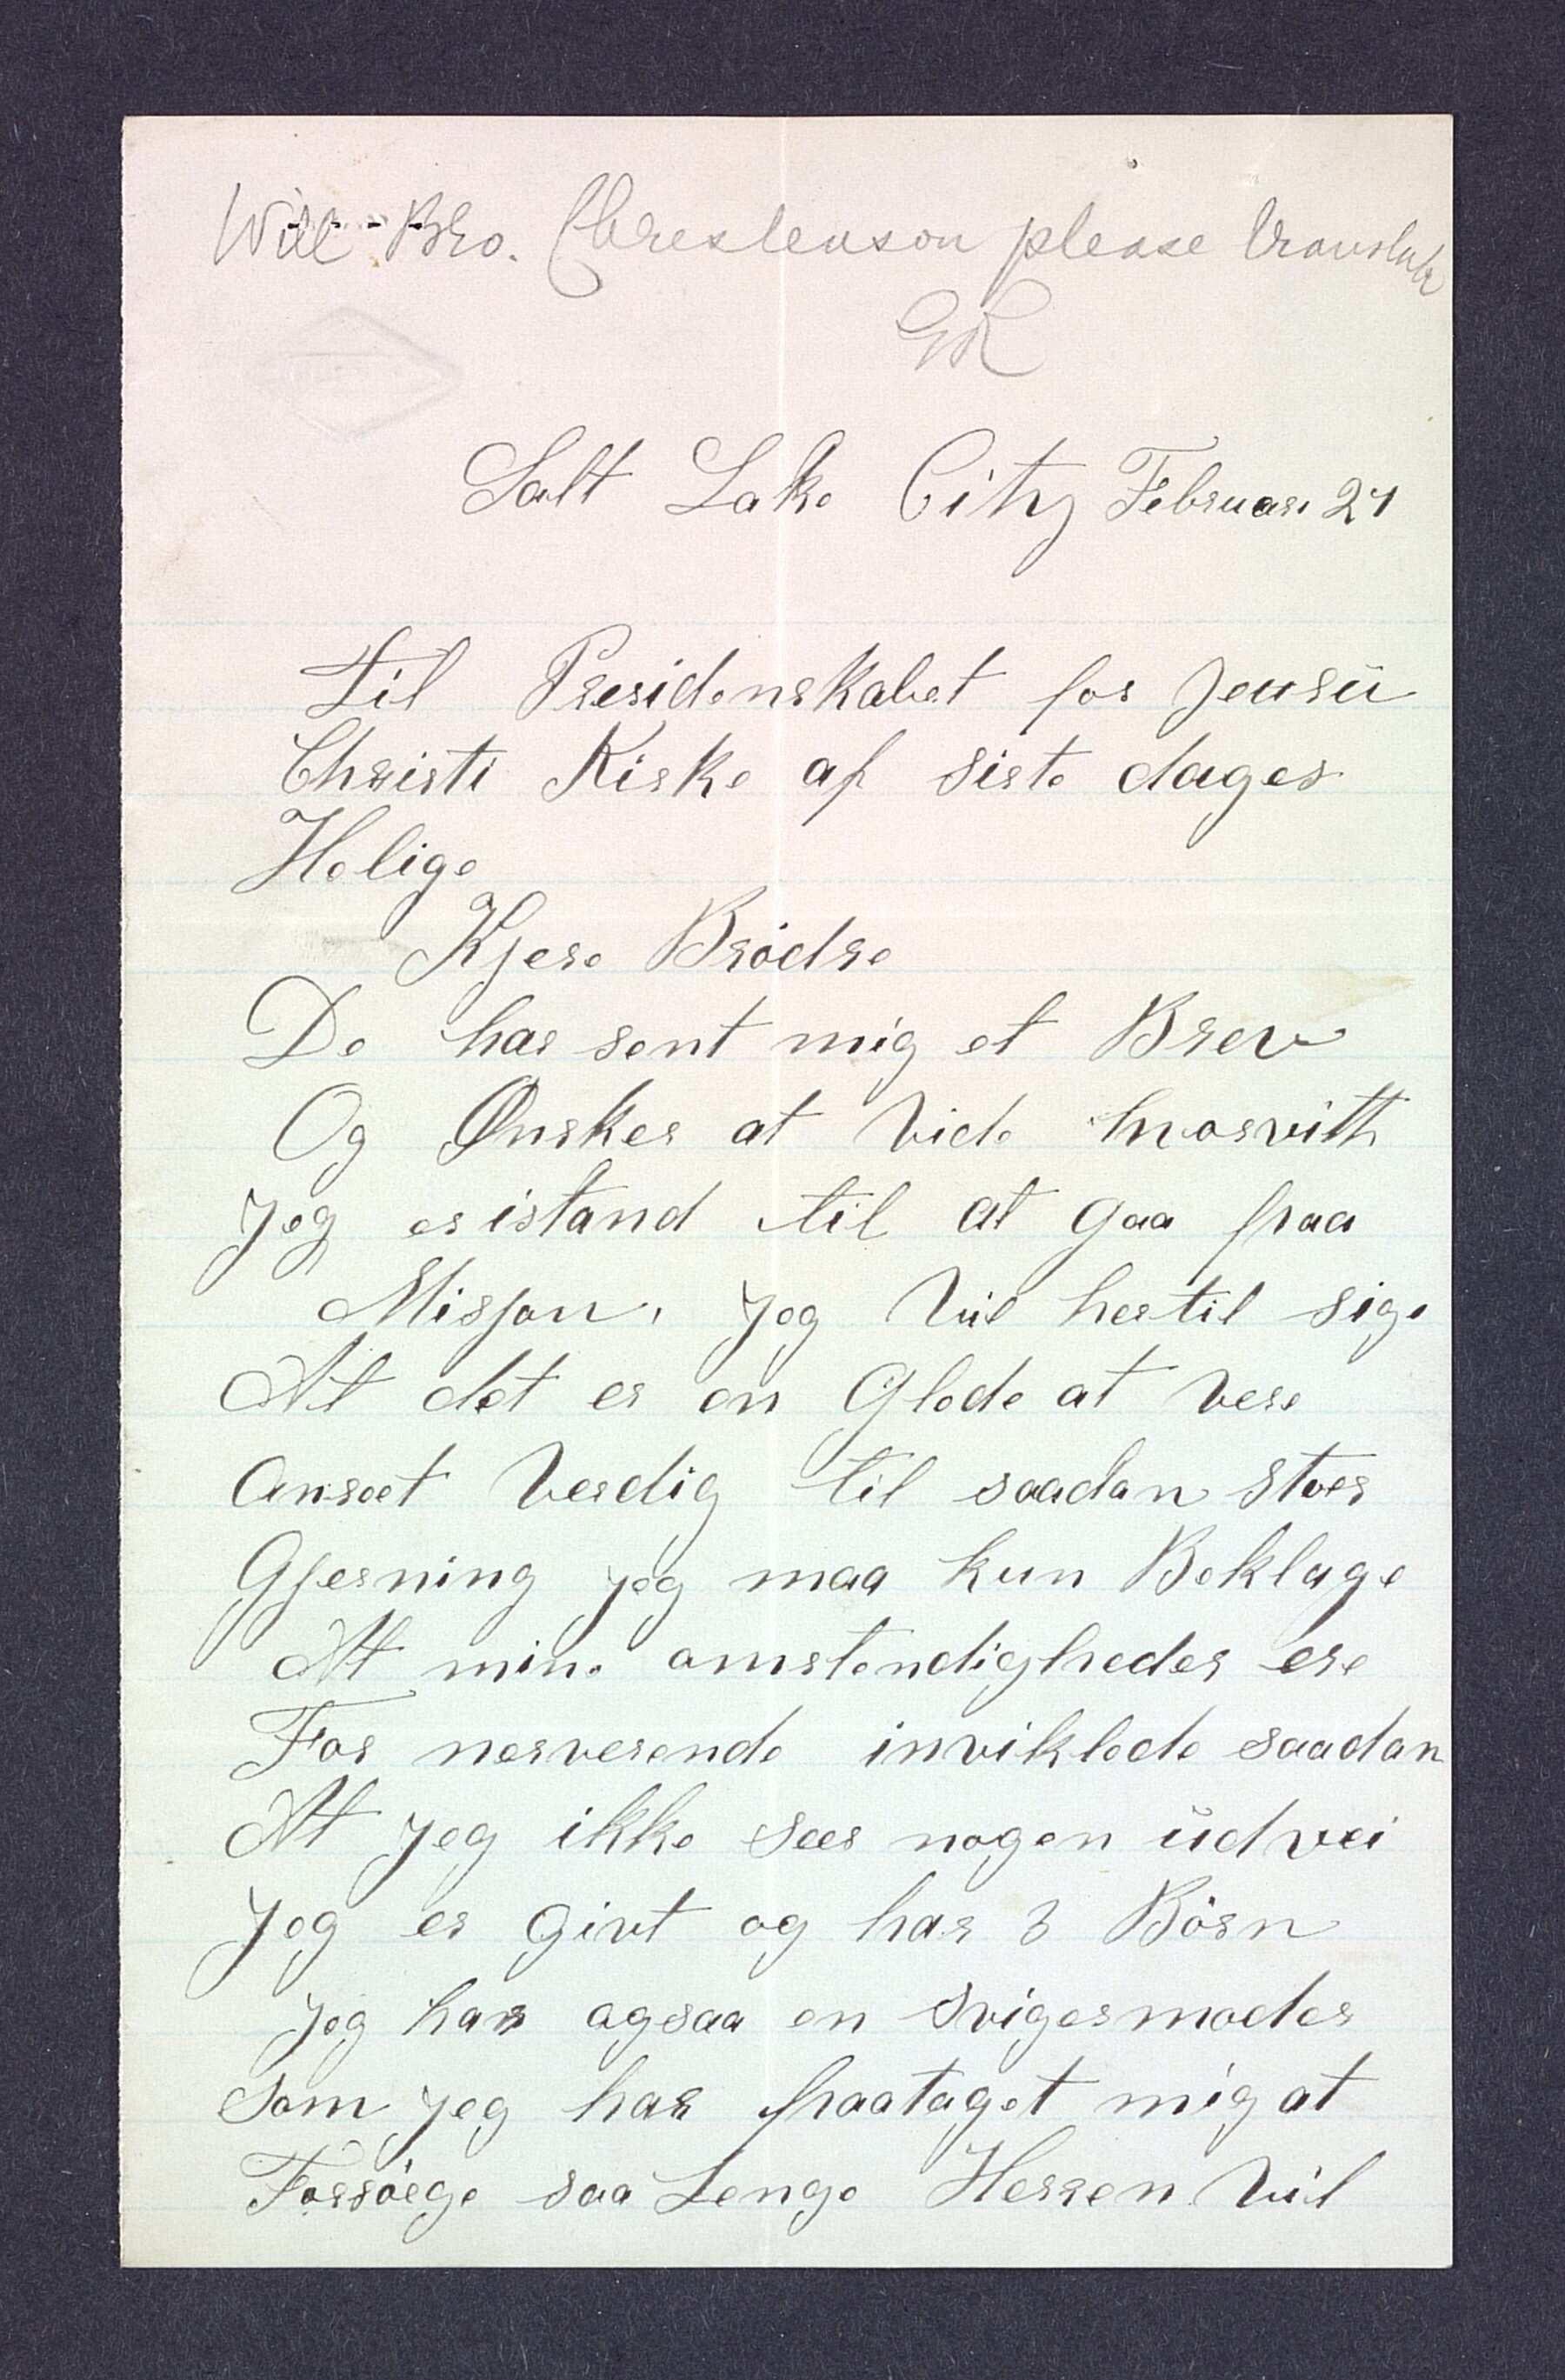 Will Bro. Chrestenson please translate
GR
Salt Lake City Februar 27
Til Presidenskabet for Jeusu
Christi Kirke af Siste dages
Helige
Kjere Brödre
De har sent mig et Brev
Og Ønsker at Vide hvorvitt
Jeg er istand til at gaa paa
Misjon. Jeg Vil hertil sige
At det er en Glede at Vere
Anseet Verdig til saadan stoer
Gjerning jeg maa kun Beklage
At mine omstendigheder ere
For nerverende inviklede saadan
At jeg ikke seer nogen udvei
Jeg er Givt og har 3 Börn
Jeg har ogsaa en Svigermoder
Som jeg har paataget mig at
Forsöege saa Lenge Herren Vil